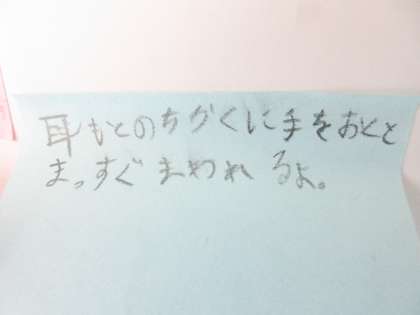 耳もとのちかくに手をおくと
まっすぐ まわれ るよ。